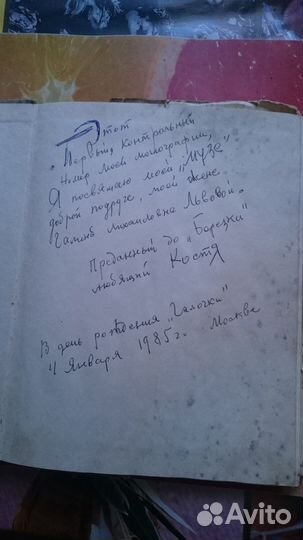 Этот
Первый, контрольный
Номер моей монографии,
Я посвящаю моей „Музе",
доброй подруге, моей жене
Галине Михайловне Львовой.
Преданный до „Березки"
любящий Костя
В день рождения „Галочки"
4 Января 1985 г. Москва
Avito